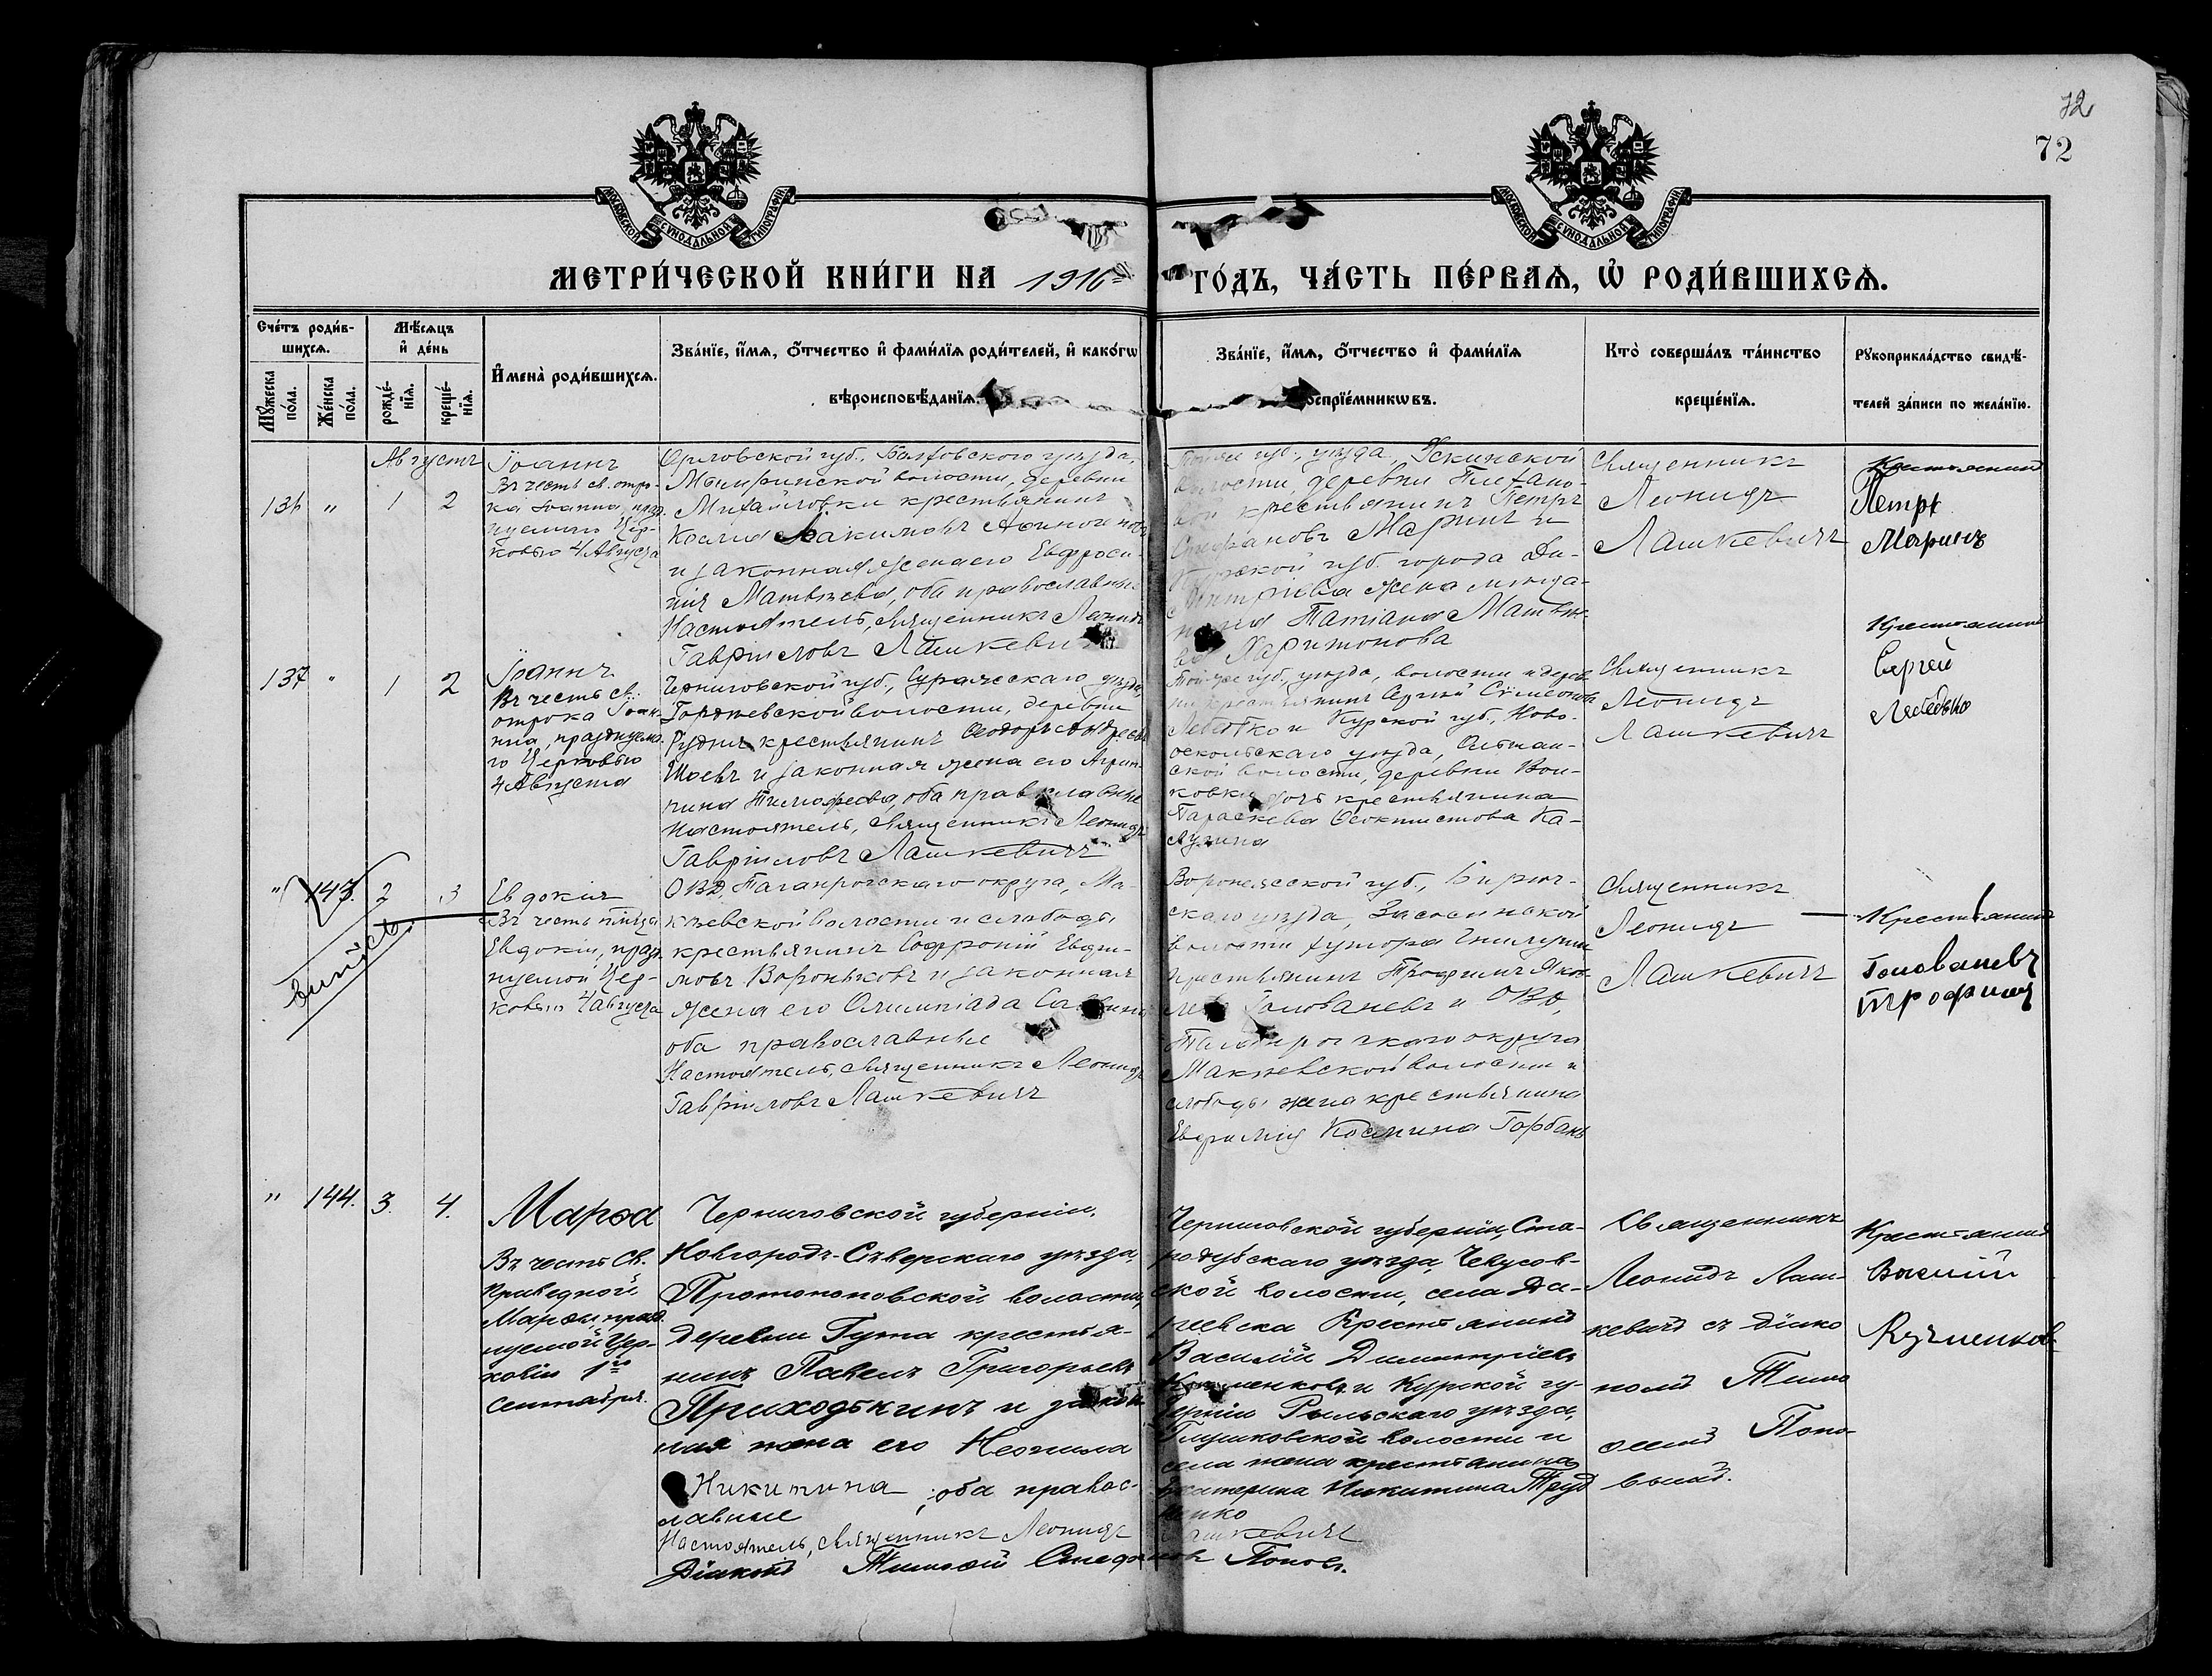 72
72
МОСКОВСКОЙ СѴНОДАЛЬНОЙ ТИПОГРАФІИ
МОСКОВСКОЙ СѴНОДАЛЬНОЙ ТИПОГРАФІИ
МЕТРИ́ЧЕСКОЙ КНИ́ГИ НА 1916 ГО́ДЪ, ЧА́СТЬ ПЕ́РВАѦ, Ѡ҆ РОДИ́ВШИХСѦ.
Сче́тъ роди́в-
шихсѧ.
Мꙋ́жеска по́ла.
Же́нска по́ла.
Мѣ́сѧцъ
и҆ де́нь
рожде́-
нїѧ.
креще́-
нїѧ.
И҆мена̀ роди́вшихсѧ.
Зва́нїе, и҆́мѧ, ѻ҆́тчество и҆ фамѝлїѧ роди́телей, и҆ како́гѡ
вѣроисповѣ́данїѧ.
Зва́нїе, и҆́мѧ, ѻ҆́тчество и҆ фами́лїѧ
воспрїе́мникѡвъ.
Кто̀ соверша́лъ та́инство
креще́нїѧ.
Рꙋкоприкла́дство свидѣ́-
телей за́писи по жела́нїю.
Августъ
136 " 1 2
Іоаннъ
Въ честь св. отро-
ка Іоанна, празд
нуемаго Цер-
ковью 4 Августа
Орловской губ., Болховского уѣзда,
волости, деревни
Михайловки крестьянинъ
Косма Іоакимовъ
и законная жена его Евфроси-
нія Матвѣева, оба православные
Настоятель, священникъ Леонидъ
Гавріиловъ Лашкеви
Той же губ., уѣзда,
волости, деревни
крестьянинъ Петръ
Стефановъ Маринъ и
Курской губ. города Ди-
митріева жена мѣща-
нина Татіана Матвѣе-
ва Харитонова
Священникъ
Леонидъ
Лашкевичъ
Крестьянинъ
Петръ
Маринъ
137 " 1 2
Іоаннъ
Въ честь св.
отрока Іоан-
на, празднуема
го Церковью
4 Августа
Черниговской губ., Суражскаго уѣзда,
волости, деревни
Рудни крестьянинъ Ѳеодоръ Андреевъ
и законная жена его Агрип-
пина Тимофеева, оба православные
Настоятель, священникъ Леонидъ
Гавріиловъ Лашкевичъ
Той-же губ., уѣзда, волости и дерев
ни крестьянинъ Сергій Сѵмеоновъ
Лебедько и Курской губ., Ново-
оскольскаго уѣзда, Ольшан-
ской волости, деревни Вол-
ковки дочь крестьянина
Параскева Ѳеоктистова Ка-
лугина
Священникъ
Леонидъ
Лашкевичъ
Крестьянинъ
Сергей
Лебедько
" 143. 2 3
Евдокія
Въ честь мц.
Евдокіи, празд
нуемой Цер-
ковью 4 августа
ОВД, Таганрогскаго округа, Ма-
кѣевской волости и слободы
крестьянинъ Софроній Евфи-
мовъ Вороньковъ и законная
жена его Олимпіада
оба православные
Настоятель, священникъ Леонидъ
Гавріиловъ Лашкевичъ
Воронежской губ., Бирюч-
скаго уѣзда, Засосинской
волости хутора
крестьянинъ Трофимъ Яков
Голованевъ и ОВД,
Таганрогскаго округа
Макѣевской волости и
слободы жена крестьянина
Евфимія Космина Горбань
Священникъ
Леонидъ
Лашкевичъ
Крестьянинъ
Голованевъ
Трофим
" 144. 3. 4.
Марѳа
Въ честь Св.
Праведной
Марѳы, празд
нуемой Цер-
ковію 1го
сентября.
Черниговской губерніи,
Новгородъ-Сѣверскаго уѣзда,
Протопоповской волости,
деревни Гута крестья-
нинъ Павелъ Григорьевъ
Приходькинъ и закон
ная жена его Неонила
Никитина, оба правос-
лавные
Настоятель, священникъ Леонидъ
Лашкевичъ
Діаконъ Тимоѳей Стефановъ Поповъ.
Черниговской губерніи, Ста-
родубскаго уѣзда,
ской волости, села
Крестьянинъ
Василій Димитріевъ
и Курской гу-
берніи Рыльскаго уѣзда,
Глушковской волости и
села жена крестьянина
Екатерина Никитина Труд
Священникъ
Леонидъ Лаш-
кевичъ съ діако
номъ Тимо
ѳеемъ Попо-
вымъ.
Крестьянинъ
Василий